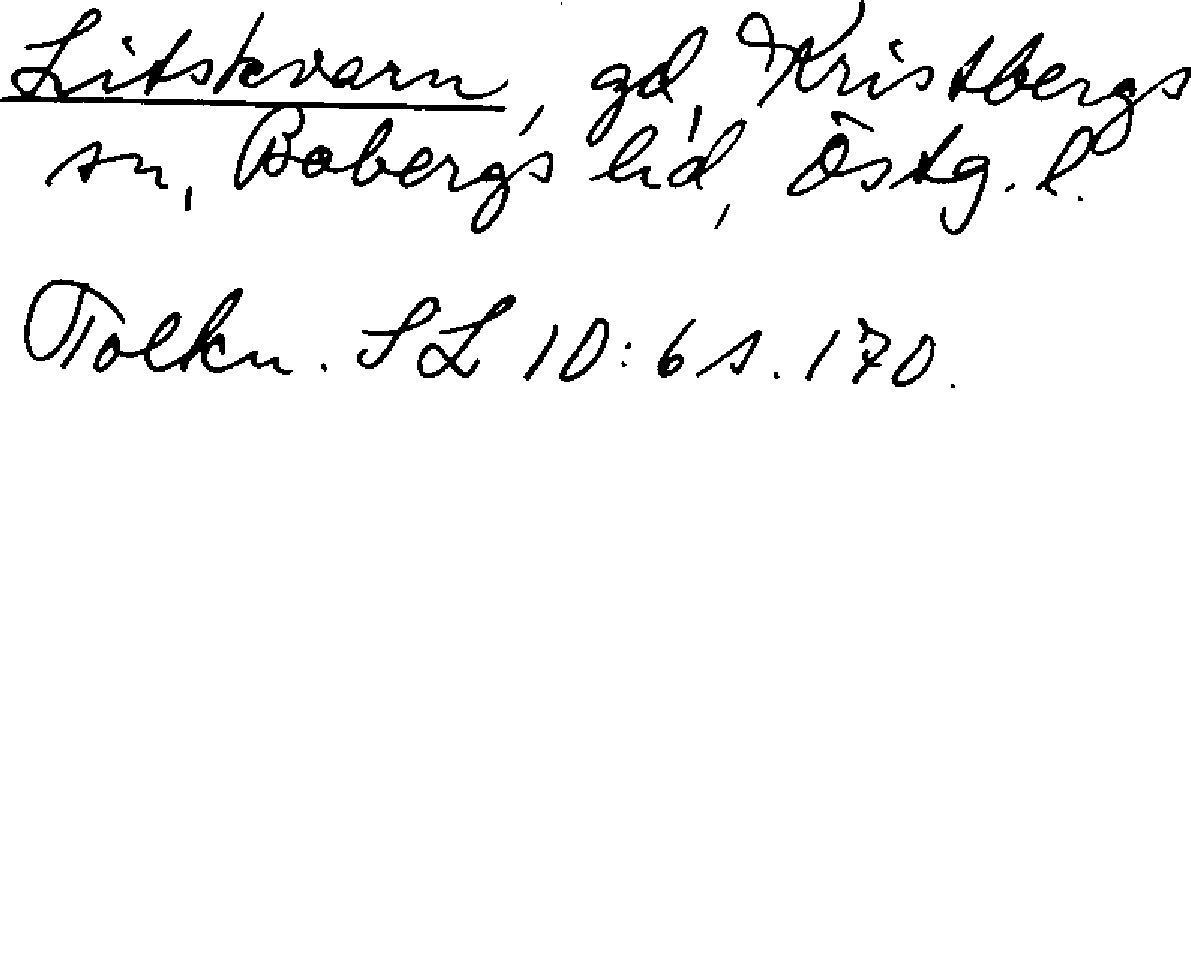 Litskvarn, gd, Kristbergs
sn, Bobergs hd, Östg. l.
Tolkn. SL 10:6 s. 170.